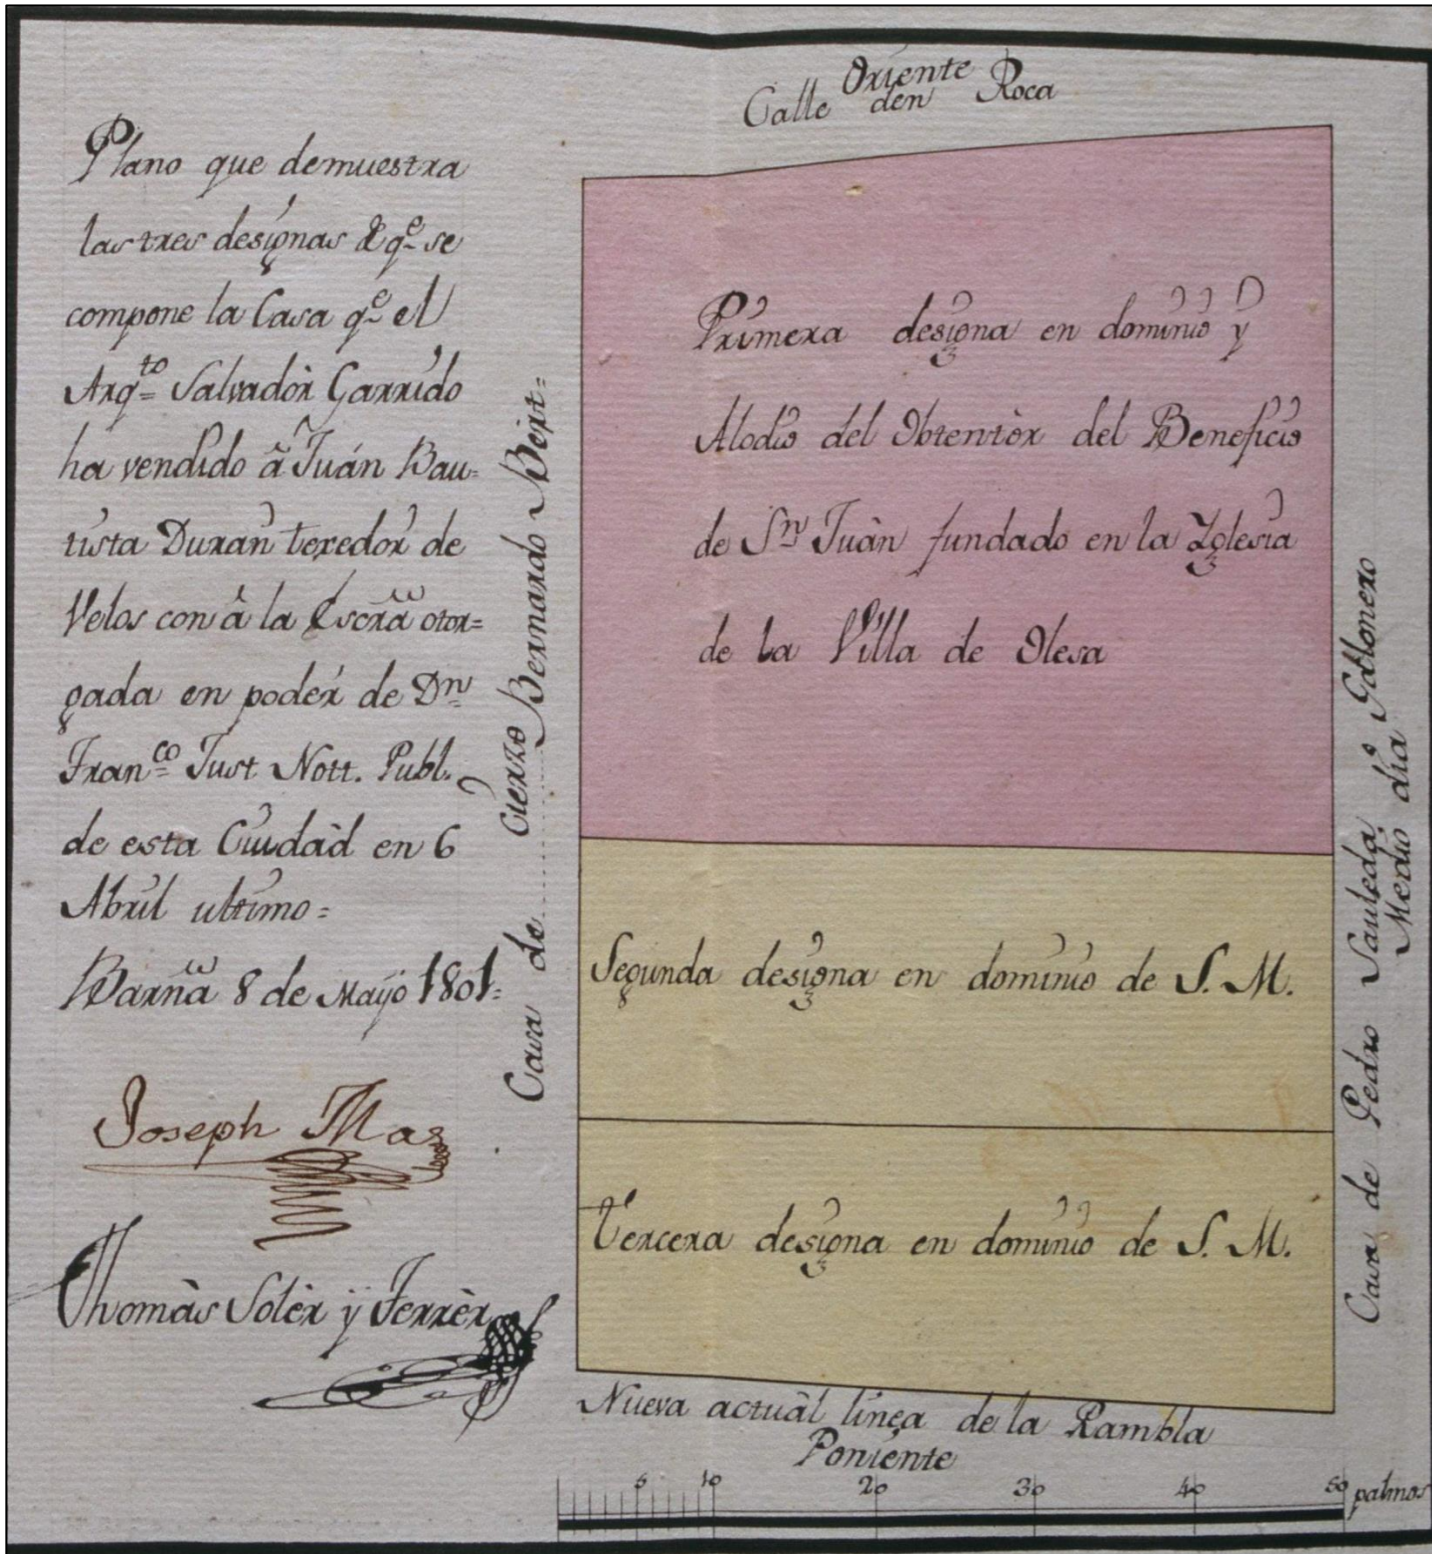 Plano que demuestra
las tres designas de qe se
compone la Casa qe el
Arqto Salvadòr Garrido
ha vendido â Juán Bau=
tista Durán texedor de
Velos con â la Escraa otor=
gada en podér de Dn
Franco Just Nott. Publ.
de esta Ciudàd en 6
Abril ultimo=
Barna 8 de Mayo 1801=
Joseph Mas
Thomàs Solèr ÿ Ferrèr
Casa de Bernardo Bext=
Cierzo
Oriente
Calle den Roca
Primera designa en dominio y
Alodio del Obtentòr del Beneficio
de Sn Juàn fundado en la Yglesia
de la Villa de Olesa
Segunda designa en dominio de S. M.
Tercera designa en dominio de S. M.
Casa de Pedro Sauleda Galonero
Medio dia
Nueva actuàl linea de la Rambla
Poniente
5 10 20 30 40 50 palmos